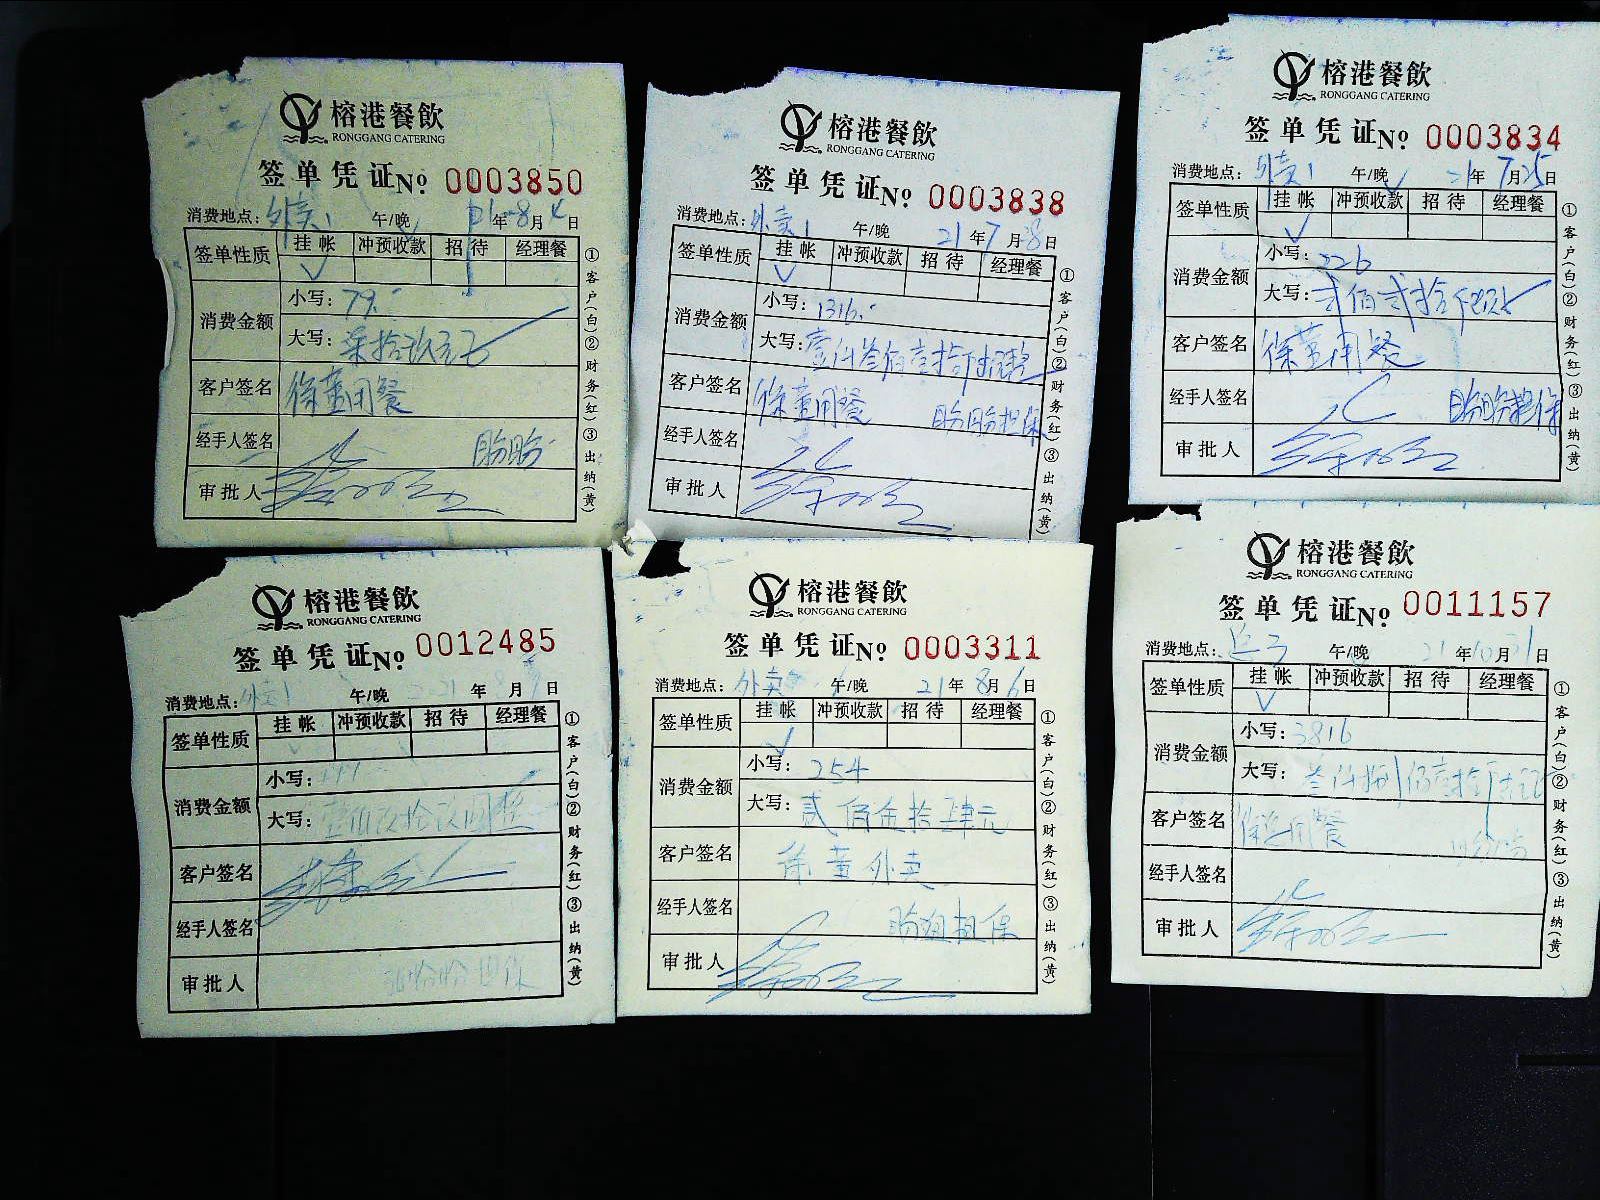 榕港餐飲
RONGGANG CATERING
签单凭证No 0003850
消费地点: 外卖1 午/晚 21年8月4日
签单性质 挂帐 冲预收款 招待 经理餐
消费金额 小写: 79.-
大写: 柒拾玖元正
客户签名 徐董用餐
经手人签名 盼盼
审批人
①客户(白)②财务(红)③出纳(黄)
榕港餐飲
RONGGANG CATERING
签单凭证No 0003838
消费地点: 外卖1 午/晚 21年7月8日
签单性质 挂帐 冲预收款 招待 经理餐
消费金额 小写: 1316.-
大写: 壹仟叁佰壹拾陆元整
客户签名 徐董用餐
盼盼担保
经手人签名
审批人
①客户(白)②财务(红)③出纳(黄)
榕港餐飲
RONGGANG CATERING
签单凭证No 0003834
消费地点: 外卖1 午/晚 21年7月25日
签单性质 挂帐 冲预收款 招待 经理餐
消费金额 小写: 226
大写: 贰佰贰拾陆元
客户签名 徐董用餐
经手人签名 盼盼担保
审批人
①客户(白)②财务(红)③出纳(黄)
榕港餐飲
RONGGANG CATERING
签单凭证No 0012485
消费地点: 外卖1 午/晚 21年8月9日
签单性质 挂帐 冲预收款 招待 经理餐
消费金额 小写:
大写:
客户签名
经手人签名
审批人 担保
①客户(白)②财务(红)③出纳(黄)
榕港餐飲
RONGGANG CATERING
签单凭证No 0003311
消费地点: 外卖 午/晚 21年8月6日
签单性质 挂帐 冲预收款 招待 经理餐
消费金额 小写: 254
大写: 贰佰伍拾肆元
客户签名 徐董外卖
经手人签名 盼姐担保
审批人
①客户(白)②财务(红)③出纳(黄)
榕港餐飲
RONGGANG CATERING
签单凭证No 0011157
消费地点: 午/晚 21年10月31日
签单性质 挂帐 冲预收款 招待 经理餐
消费金额 小写: 3816
大写: 叁仟捌佰壹拾陆元
客户签名 徐总用餐
经手人签名
审批人
①客户(白)②财务(红)③出纳(黄)